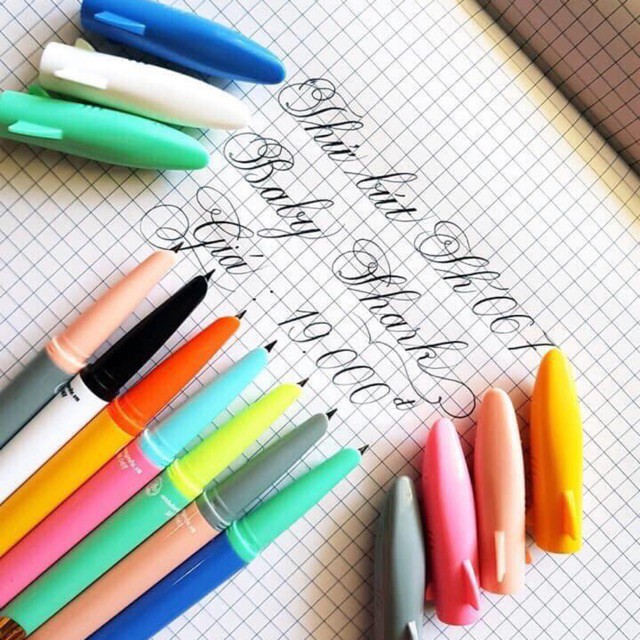 Thử bút Sh 061
Baby Shark
Giá : 19.000 đ